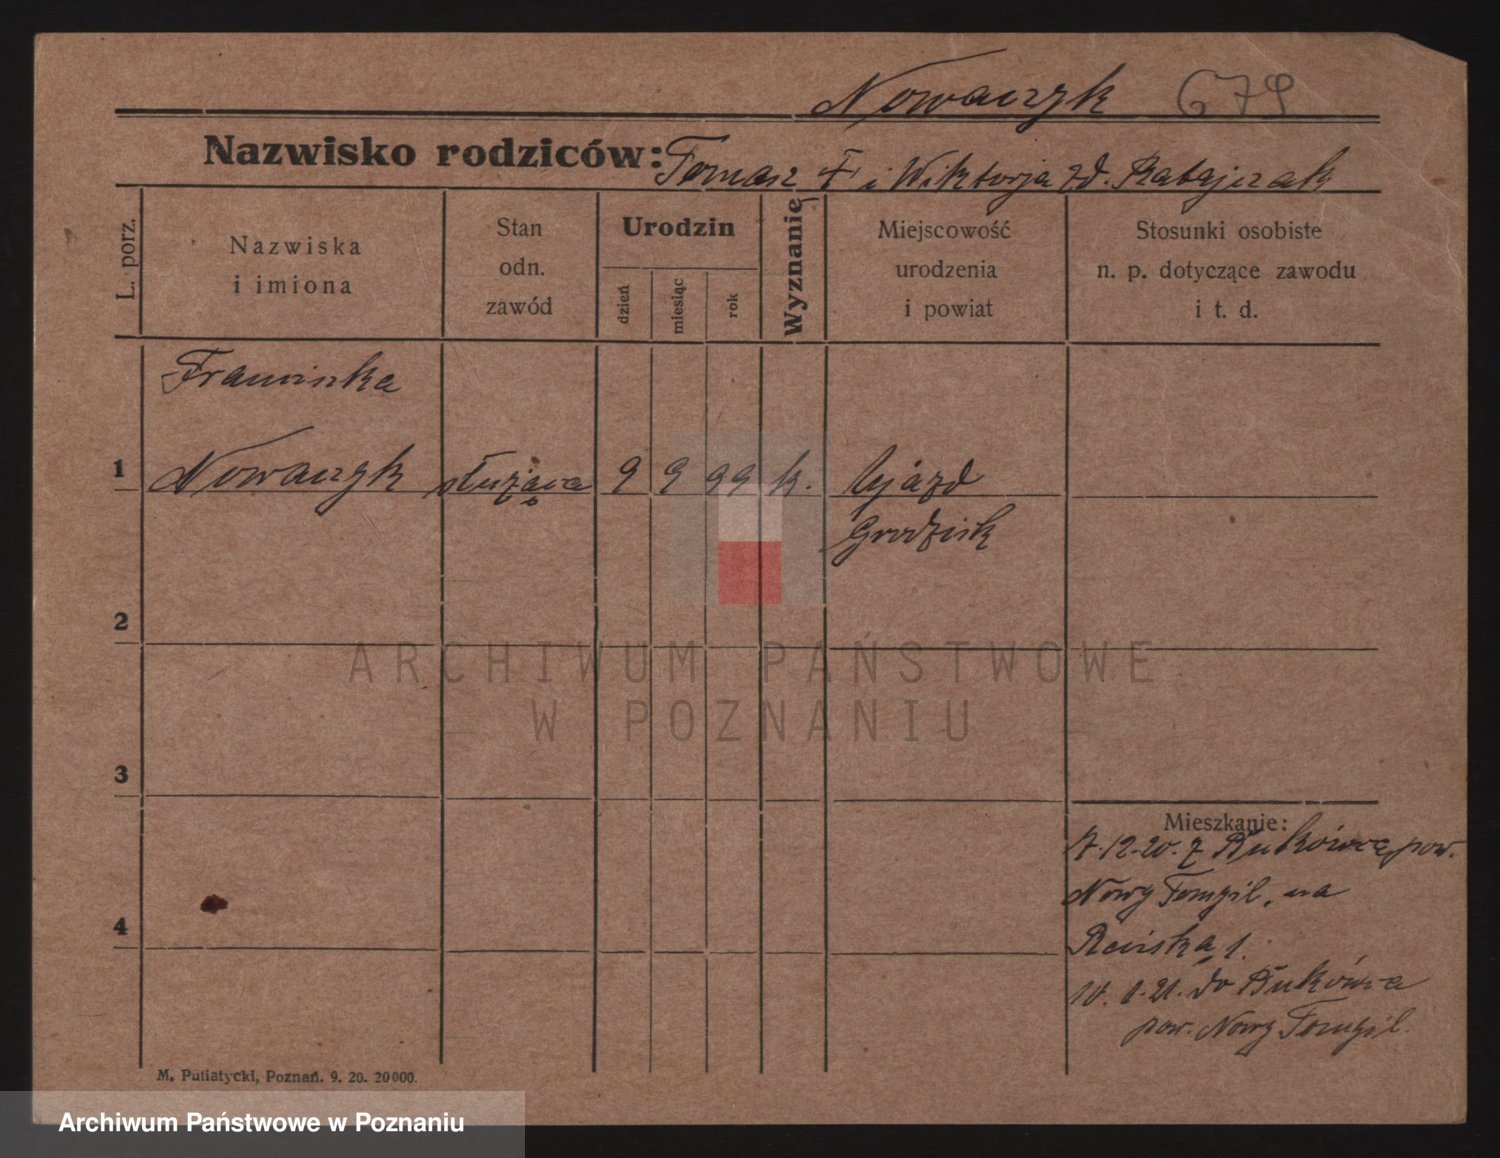 Nowaczyk 679
Nazwisko rodziców: Tomasz † i Wiktorja zd. Ratajczak
L. porz.
Nazwiska
i imiona
Stan
odn.
zawód
Urodzin
dzień
miesiąc
rok
Wyznanie
Miejscowość
urodzenia
i powiat
Stosunki osobiste
n. p. dotyczące zawodu
i t. d.
Franciszka
1 Nowaczyk służąca 9 9 99 k. Ujazd
Grodzisk
2
ARCHIWUM PAŃSTWOWE
W POZNANIU
3
Mieszkanie:
12-20. z Bukówca, pow.
Nowy Tomyśl, na
4
1.
21. do Bukówca
pow. Nowy Tomyśl.
M. Putiatycki, Poznań. 9. 20. 20000.
Archiwum Państwowe w Poznaniu